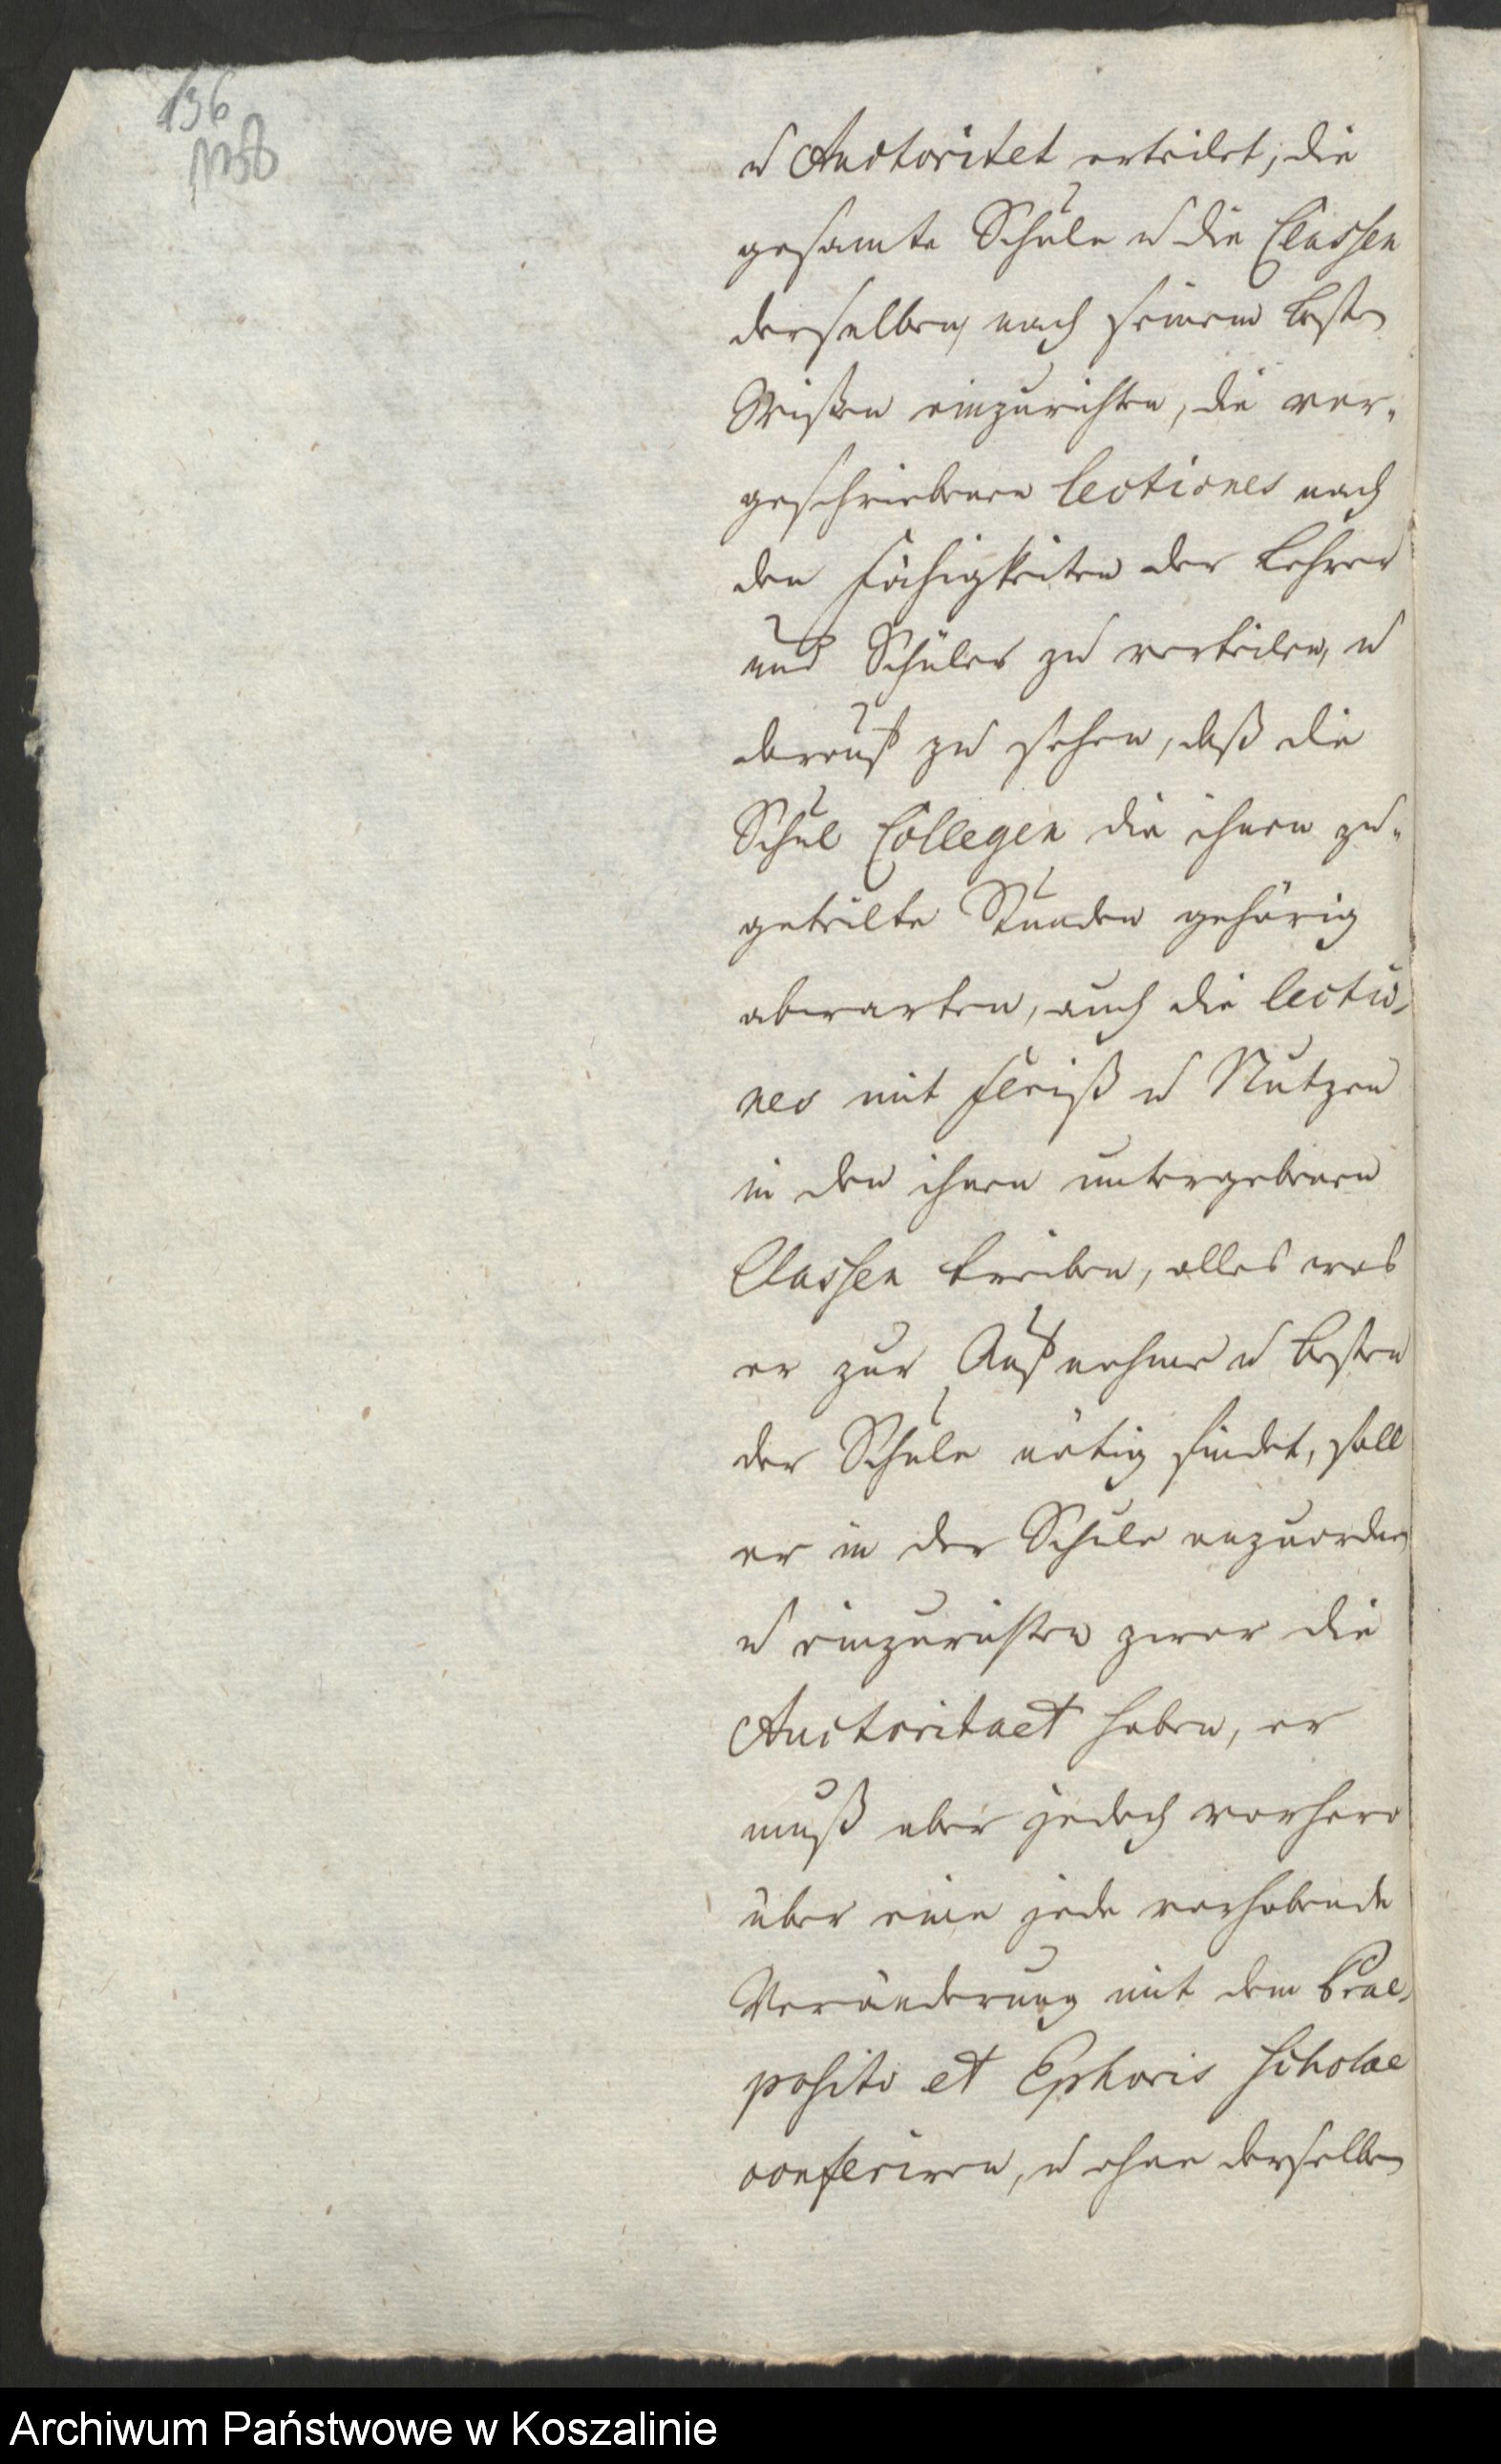 136
u Auctoritet erteilet, die
gesamte Schule u die Classen
derselben, nach seinem besten
Wißen einzurichten, die vor-
geschriebenen lectiones nach
den Fähigkeiten der Lehrer
und Schüler zu verteilen, u
darauf zu sehen, daß die
Schul Collegen die ihnen zu-
geteilte Stunden gehörig
abwarten, auch die lectio-
nes mit Fleiß u Nutzen
in den ihnen untergebenen
Classen treiben, alles was
er zur Aufnahme u besten
der Schule nötig findet, soll
er in der Schule anzuordnen
u einzurichten zwar die
Auctoritaet haben, er
muß aber jedoch vorhero
über eine jede vorhabende
Veränderung mit dem Prae-
posito et Ephoris Scholae
conferiren, u ohne derselben
Archiwum Państwowe w Koszalinie